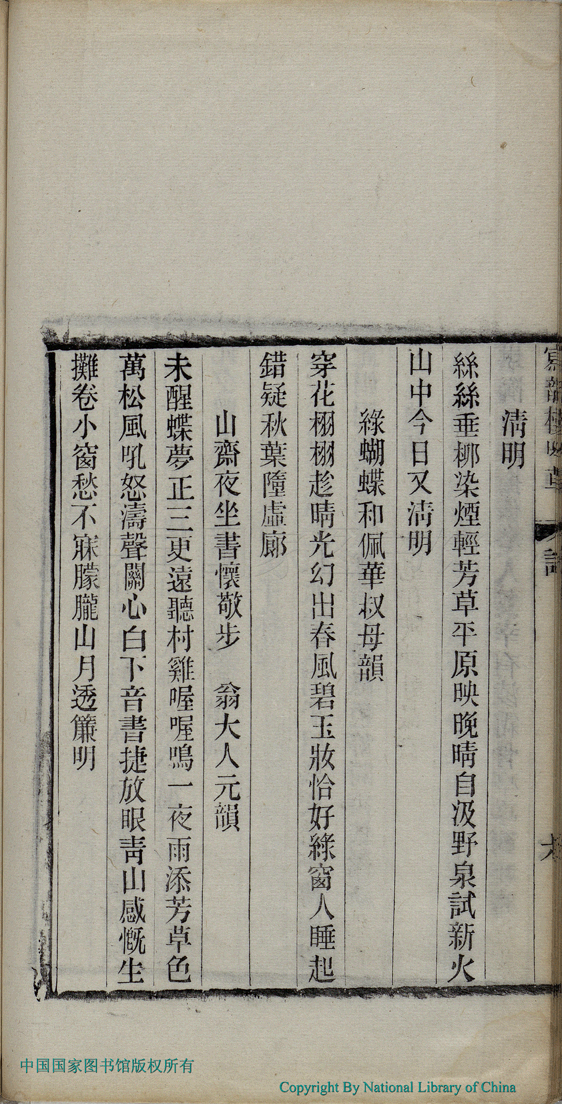 清明
絲絲垂柳染煙輕芳草平原映晚晴自汲野泉試新火
山中今日又清明
綠蝴蝶和佩華叔母韻
穿花栩栩趁晴光幻出春風碧玉妝恰好綠窗人睡起
錯疑秋葉墮虛廊
山齋夜坐書懷敬步　翁大人元韻
未醒蝶夢正三更遠聽村雞喔喔鳴一夜雨添芳草色
萬松風吼怒濤聲關心白下音書捷放眼靑山感慨生
攤卷小窗愁不寐朦朧山月透簾明
中国国家图书馆版权所有
Copyright By National Library of China